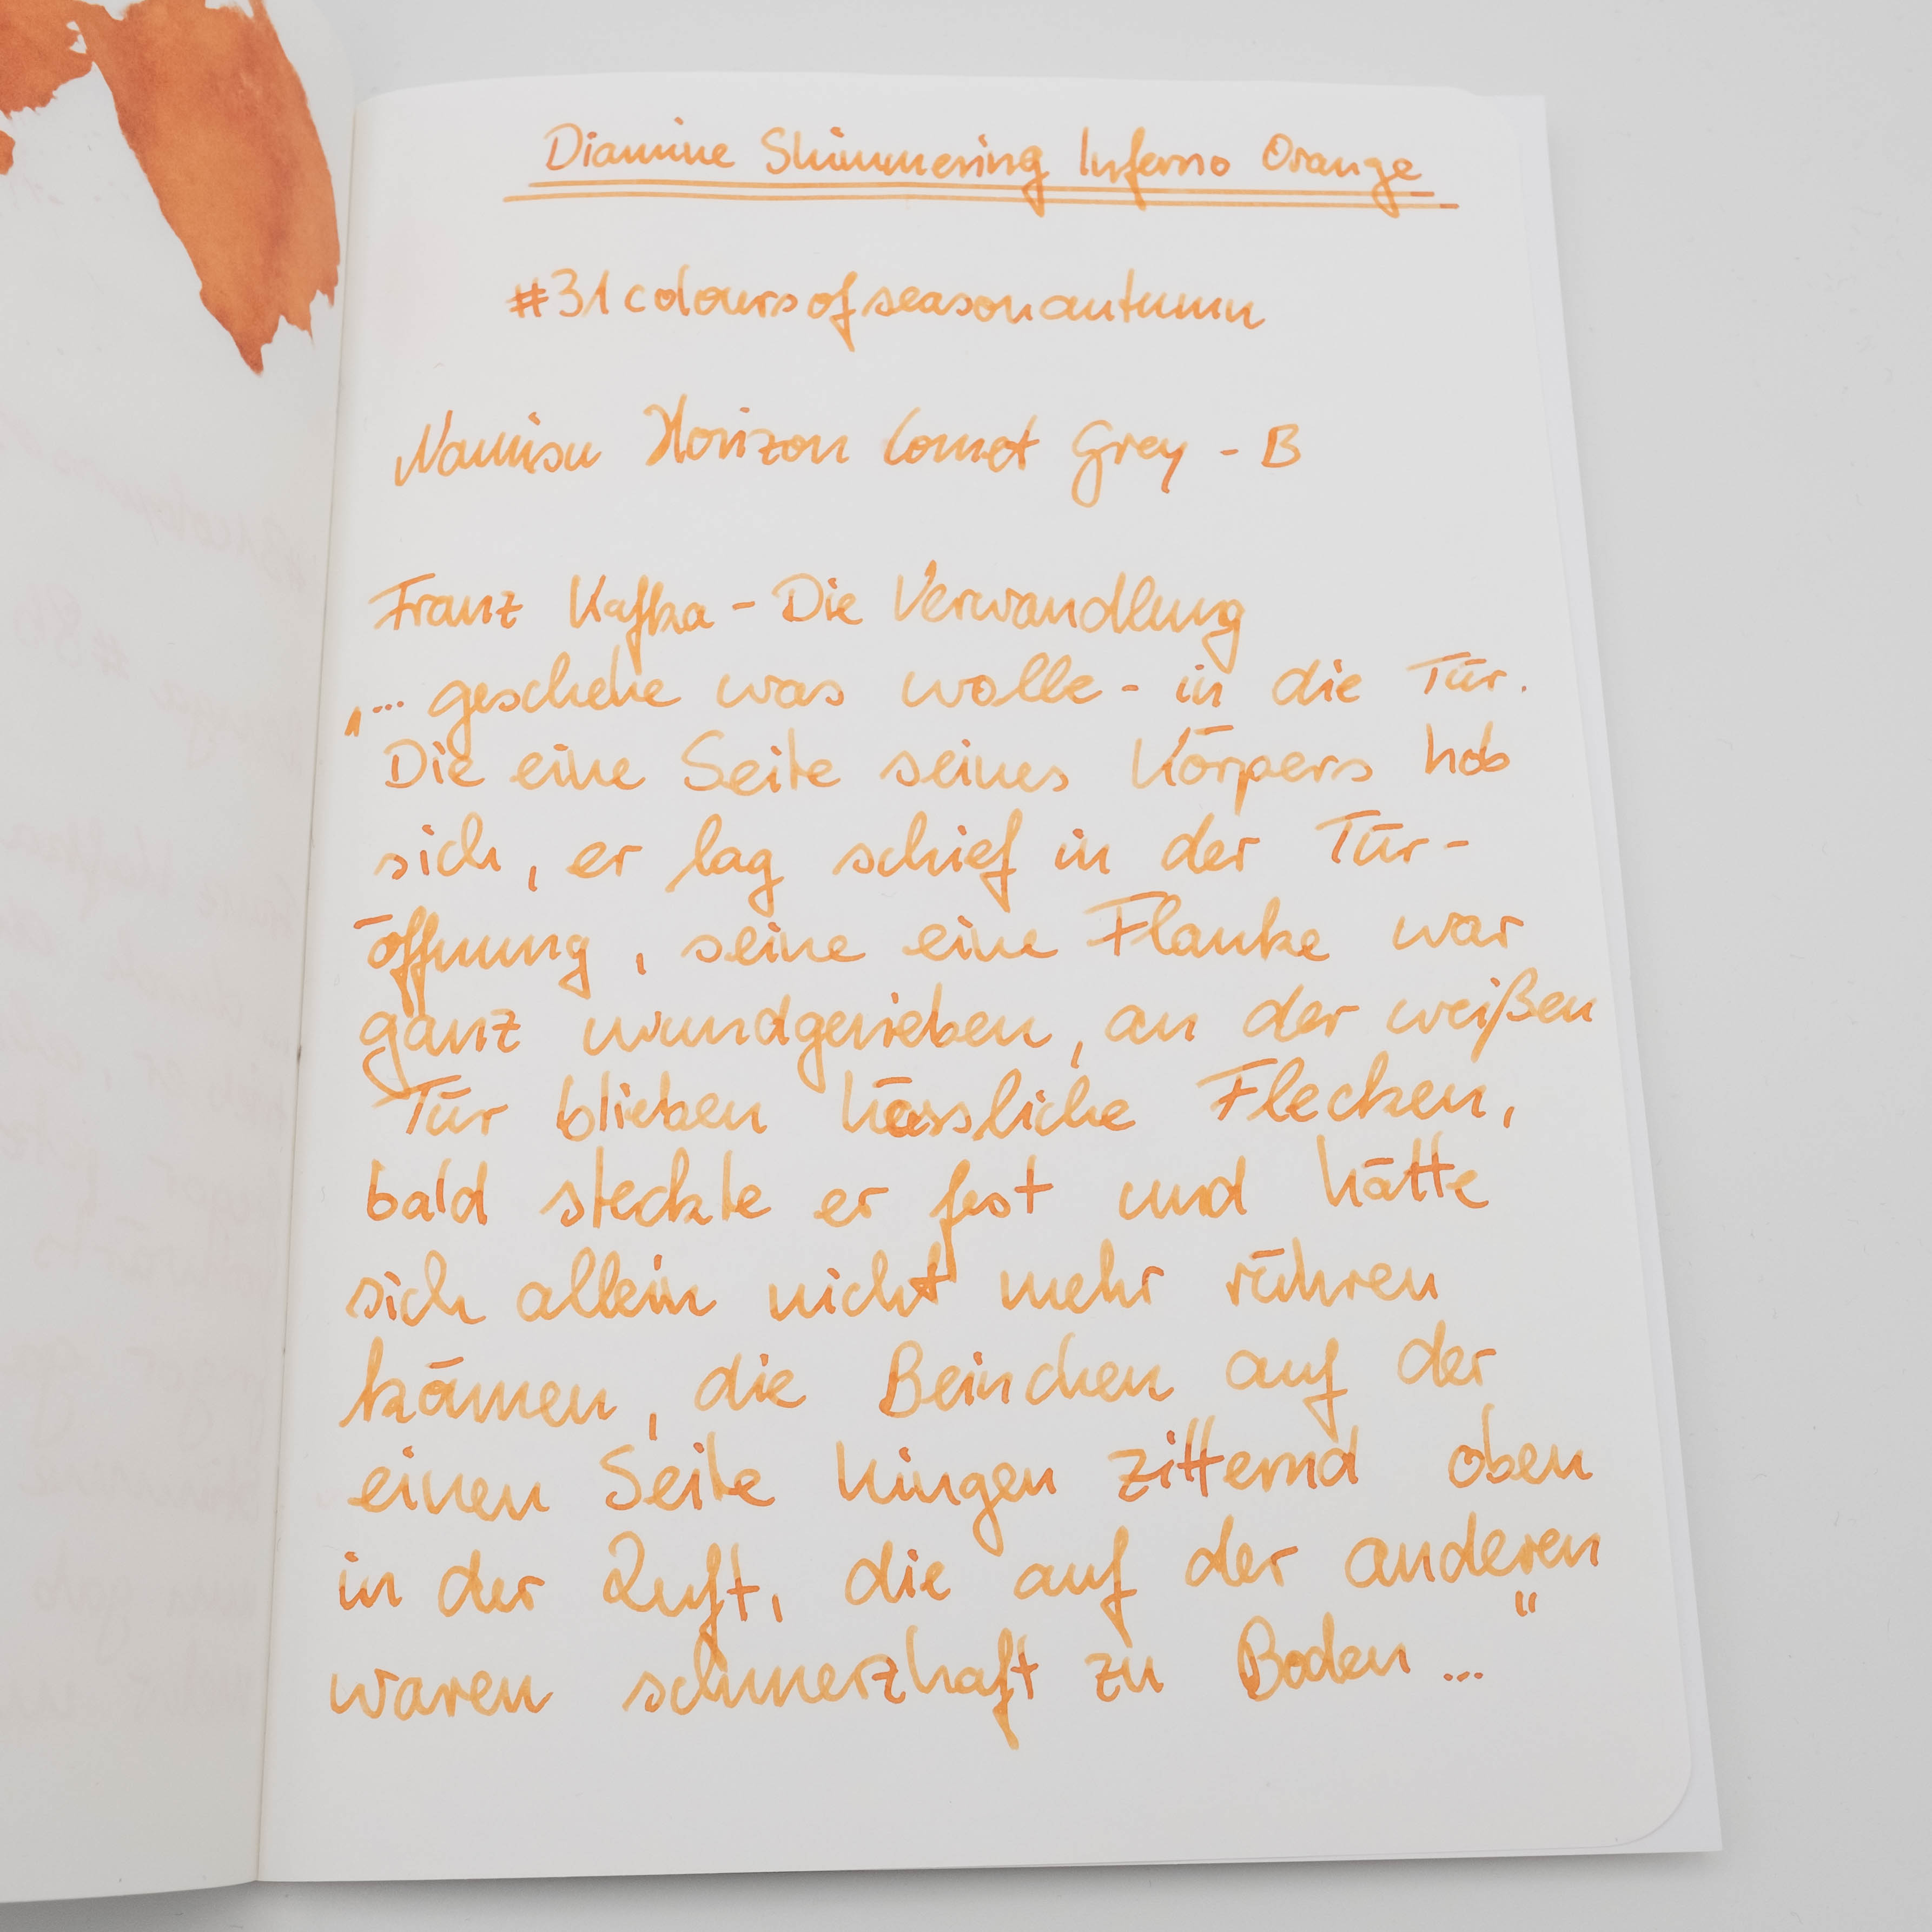 Diamine Shimmering Inferno Orange
#31coloursofseasonautumn
Namisu Horizon Comet Grey - B
Franz Kafka - Die Verwandlung
„... geschehe was wolle - in die Tür.
Die eine Seite seines Körpers hob
sich, er lag schief in der Tür-
öffnung, seine eine Flanke war
ganz wundgerieben, an der weißen
Tür blieben hässliche Flecken,
bald steckte er fest und hätte
sich allein nicht mehr rühren
kämen, die Beinchen auf der
einen Seite hingen zitternd oben
in der Luft, die auf der anderen
waren schmerzhaft zu Boden ..."